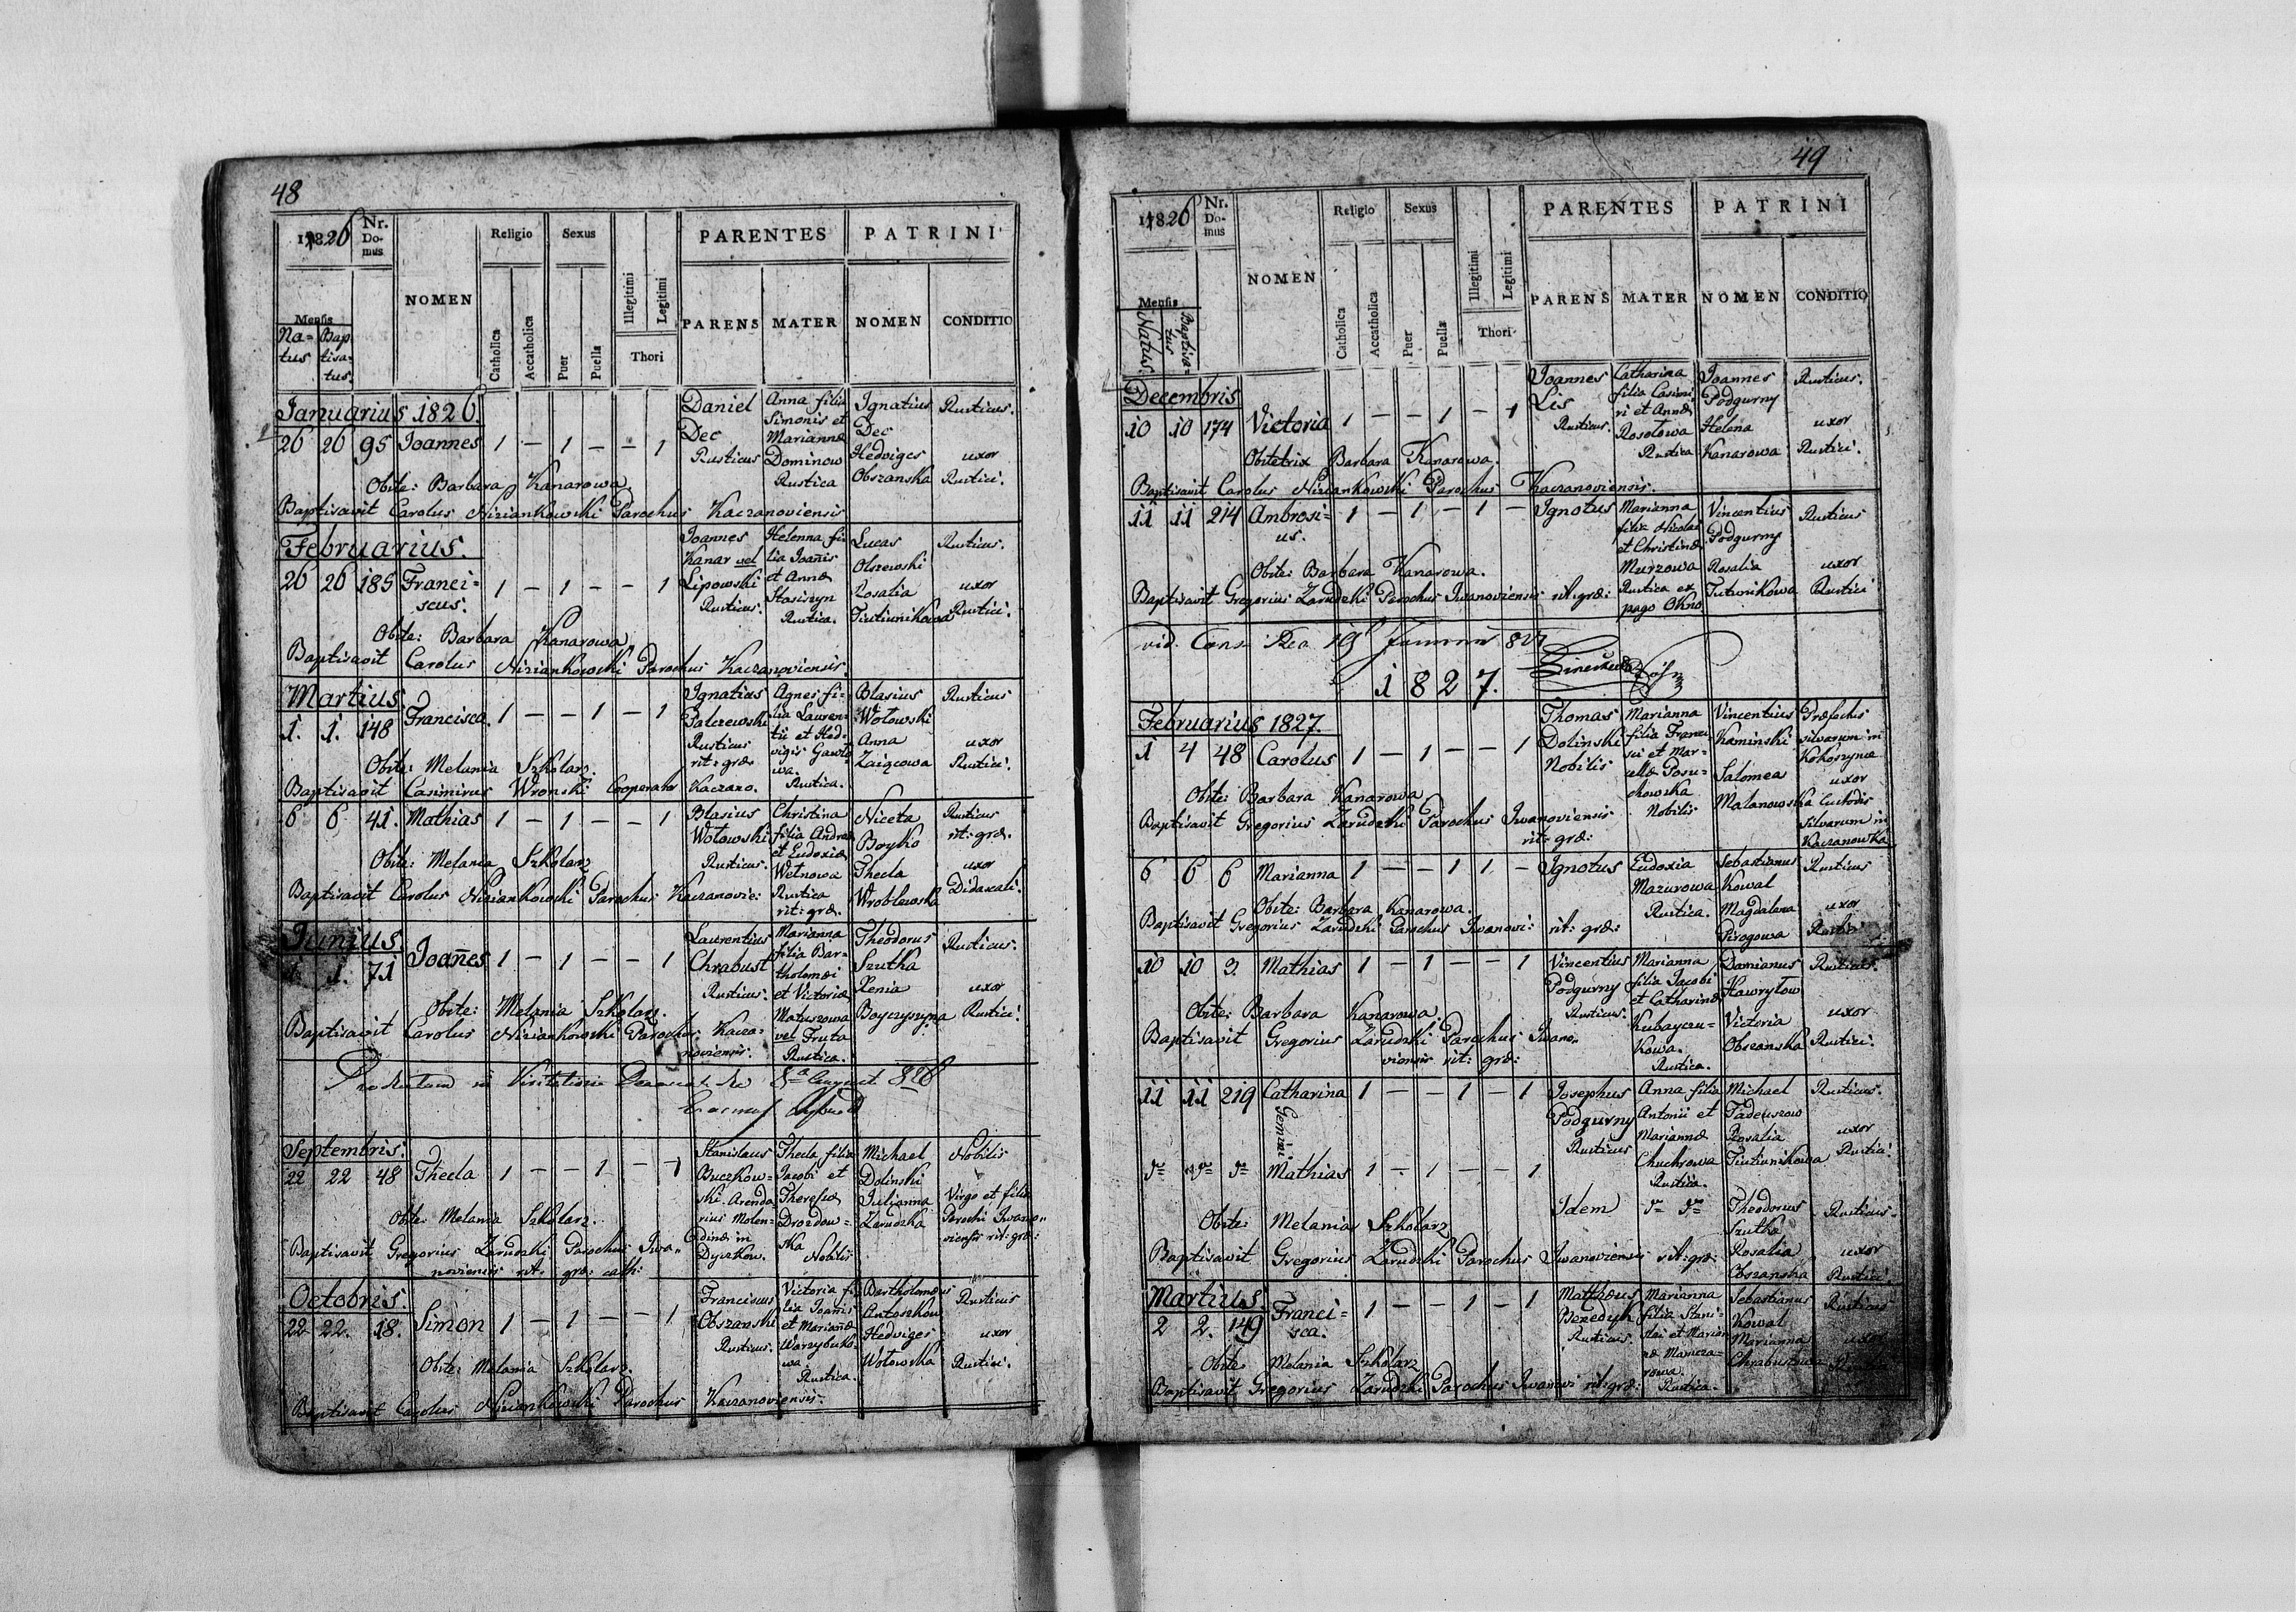 48
1826 Nr. Domus NOMEN Religio Sexus PARENTES PATRINI
Mensis Catholica Accatholica Puer Puella Illegitimi Legitimi Thori PARENS MATER NOMEN CONDITIO
Na= Bap
tus tisa-
tus.
Januarius 1826.
26 26 95 Joannes 1 – 1 – – 1
Daniel
Dec
Rusticus
Anna filia
Simonis et
Mariannæ
Dominow
Rustica
Ignatius
Dec
Hedviges
Obszanska
Rusticus.
uxor
Rustici.
Obste: Barbara Kanarowa.
Baptisavit Carolus Niziankowski Parochus Kaczanoviensis
Februarius.
26 26 185 Franci=
scus. 1 – 1 – – 1
Joannes
Kanar vel
Lipowski
Rusticus.
Helenna fi-
lia Joannis
et Annæ
Stasiszyn
Rustica.
Lucas
Olszewski
Rosalia
Tiutiunikowa
Rusticus.
uxor
Rustici.
Obste: Barbara Kanarowa
Baptisavit Carolus Niziankowski Parochus Kaczanoviensis.
Martius.
1. 1. 148 Francisca. 1 – – 1 – 1
Ignatius
Palczewski
Rusticus
rit: græ.
Agnes fi-
lia Lauren-
tii et Hed-
vigis Gawlo-
wa.
Rustica.
Blasius
Wołowski
Anna
Zaiącowa
Rusticus
uxor
Rustici.
Obste: Melania Szkolarz.
Baptisavit Casimirus Wronski Cooperator Kaczano.
6 6 41. Mathias 1 – 1 – – 1
Blasius
Wołowski
Rusticus.
Christina
filia Andreæ
et Eudoxiæ
Wetnowa
Rustica
rit: græ.
Niceta
Boyko
Thecla
Wroblewska
Rusticus
rit: græ.
uxor
Didascali.
Obste: Melania Szkolarz
Baptisavit Carolus Niziankowski Parochus Kaczanovie:
Junius
1. 1. 71 Joannes 1 – 1 – – 1
Laurentius
Chrabust
Rusticus.
Marianna
filia Bar-
tholomæi
et Victoriæ
Matuszowa
vel Fruta
Rustica.
Theodorus
Szutka
Xenia
Boyczyszyna
Rusticus.
uxor
Rustici.
Obste: Melania Szkolarz.
Baptisavit Carolus Niziankowski Parochus Kacza-
noviensis.
Productum in Visitatione
Septembris.
22 22 48 Thecla 1 – – 1 – 1
Stanislaus
Buczkow=
ski Arenda
rius Molen=
dinæ in
Dyczkow.
Thecla filia
Jacobi et
Theresiæ
Drozdow=
ska
Nobilis
Michael
Dolinski
Julianna
Zarudzka
Nobilis
Virgo et filia
Parochi Iwano-
viensis rit: græ:
Obste: Melania Szkolarz.
Baptisavit Gregorius Zarudzki Parochus Iwa-
noviensis rit: græ: cath:
Octobris.
22 22. 18. Simon 1 – 1 – – 1
Franciscus
Obszanski
Rusticus.
Victoria fi-
lia Joannis
et Mariannæ
Warzybuko-
wa
Rustica.
Bartholomæus
Antoszkow
Hedviges
Wołowska
Rusticus
uxor
Rustici.
Obste: Melania Szkolarz.
Baptisavit Carolus Niziankowski Parochus Kaczanoviensis.
49
1826 Nr. Domus NOMEN Religio Sexus PARENTES PATRINI
Mensis Catholica Accatholica Puer Puella Illegitimi Legitimi Thori PARENS MATER NOMEN CONDITIO
Natus. Baptisa=
tus
Decembris
10 10 174 Victoria 1 – – 1 – 1
Joannes
Lis
Rusticus.
Catharina
filia Casimi-
ri et Annæ
Rosołowa
Rustica
Joannes
Podgurny
Helena
Kanarowa
Rusticus.
uxor
Rustici.
Obstetrix Barbara Kanarowa.
Baptisavit Carolus Niziankowski Parochus Kaczanoviensis.
11 11 214 Ambrosi=
us. 1 – 1 – 1 –
Ignotus
Marianna
filia Nicolai
et Christinæ
Murzowa
Rustica ex
pago Okno
Vincentius
Podgurny
Rosalia
Tutunikowa
Rusticus
uxor
Rustici
Obste: Barbara Kanarowa.
Baptisavit Gregorius Zarudzki Parochus Iwanoviensis rit: græ:
1827.
Februarius 1827.
1 4 48 Carolus 1 – 1 – – 1
Thomas
Dolinski
Nobilis
Marianna
filia Franci-
sci et Mar-
cellæ Posu-
chowska
Nobilis
Vincentius
Kaminski
Salomea
Malanowska
Præfectus
silvarum in
Kokoszynce
uxor
Custodis
silvarum in
Kaczanowka
Obste: Barbara Kanarowa
Baptisavit Gregorius Zarudzki Parochus Iwanoviensis
rit: græ:
6 6 6 Marianna 1 – – 1 1 –
Ignotus
Eudoxia
Mazurowa
Rustica.
Sebastianus
Kowal
Magdalena
Pirogowa
Rusticus
uxor
Rustici
Obste: Barbara Kanarowa.
Baptisavit Gregorius Zarudzki Parochus Iwanovi: rit: græ:
10 10 9. Mathias 1 – 1 – – 1
Vincentius
Podgurny
Rusticus.
Marianna
filia Jacobi
et Catharinæ
Kubayczu-
kowa.
Rustica.
Damianus
Hawryłow
Victoria
Obszanska
Rusticus.
uxor
Rustici.
Obste: Barbara Kanarowa.
Baptisavit Gregorius Zarudzki Parochus Iwano-
viensis rit: græ:
11 11 219 Catharina 1 – – 1 – 1
Gemini
Josephus
Podgurny
Rusticus
Anna filia
Antonii et
Mariannæ
Chuchrowa
Rustica.
Michael
Tadeuszow
Rosalia
Tiutiunikowa
Rusticus.
uxor
Rustici.
Mathias 1 – 1 – – 1
Idem
Theodorus
Szutka
Rosalia
Obszanska
Rusticus.
uxor
Rustici.
Obste: Melania Szkolarz
Baptisavit Gregorius Zarudzki Parochus Iwanoviensis rit: græ:
Martius
2 2. 149 Franci=
sca. 1 – – 1 – 1
Mathæus
Bezedyk
Rusticus.
Marianna
filia Stani-
slai et Marian-
næ Mamcza-
rowa
Rustica.
Sebastianus
Kowal
Marianna
Chrabustowa
Rusticus
uxor
Obste: Melania Szkolarz
Baptisavit Gregorius Zarudzki Parochus Iwanovi rit: græ: